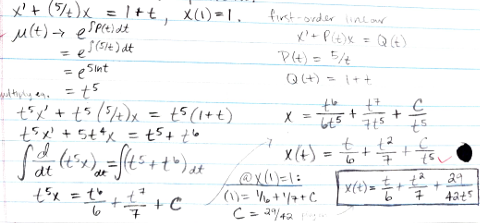 x' + (5/t)x = 1+t, x(1)=1.
first-order linear
x' + P(t)x = Q(t)
P(t) = 5/t
Q(t) = 1+t
μ(t) → e^∫P(t)dt
= e^∫(5/t)dt
= e^5lnt
= t^5
multiply eq.
t^5x' + t^5(5/t)x = t^5(1+t)
t^5x' + 5t^4x = t^5 + t^6
∫ d/dt (t^5x) dt = ∫(t^5 + t^6) dt
t^5x = t^6/6 + t^7/7 + C
x = t^6/6t^5 + t^7/7t^5 + C/t^5
x(t) = t/6 + t^2/7 + C/t^5
@x(1)=1:
(1) = 1/6 + 1/7 + C
C = 29/42
x(t) = t/6 + t^2/7 + 29/42t^5